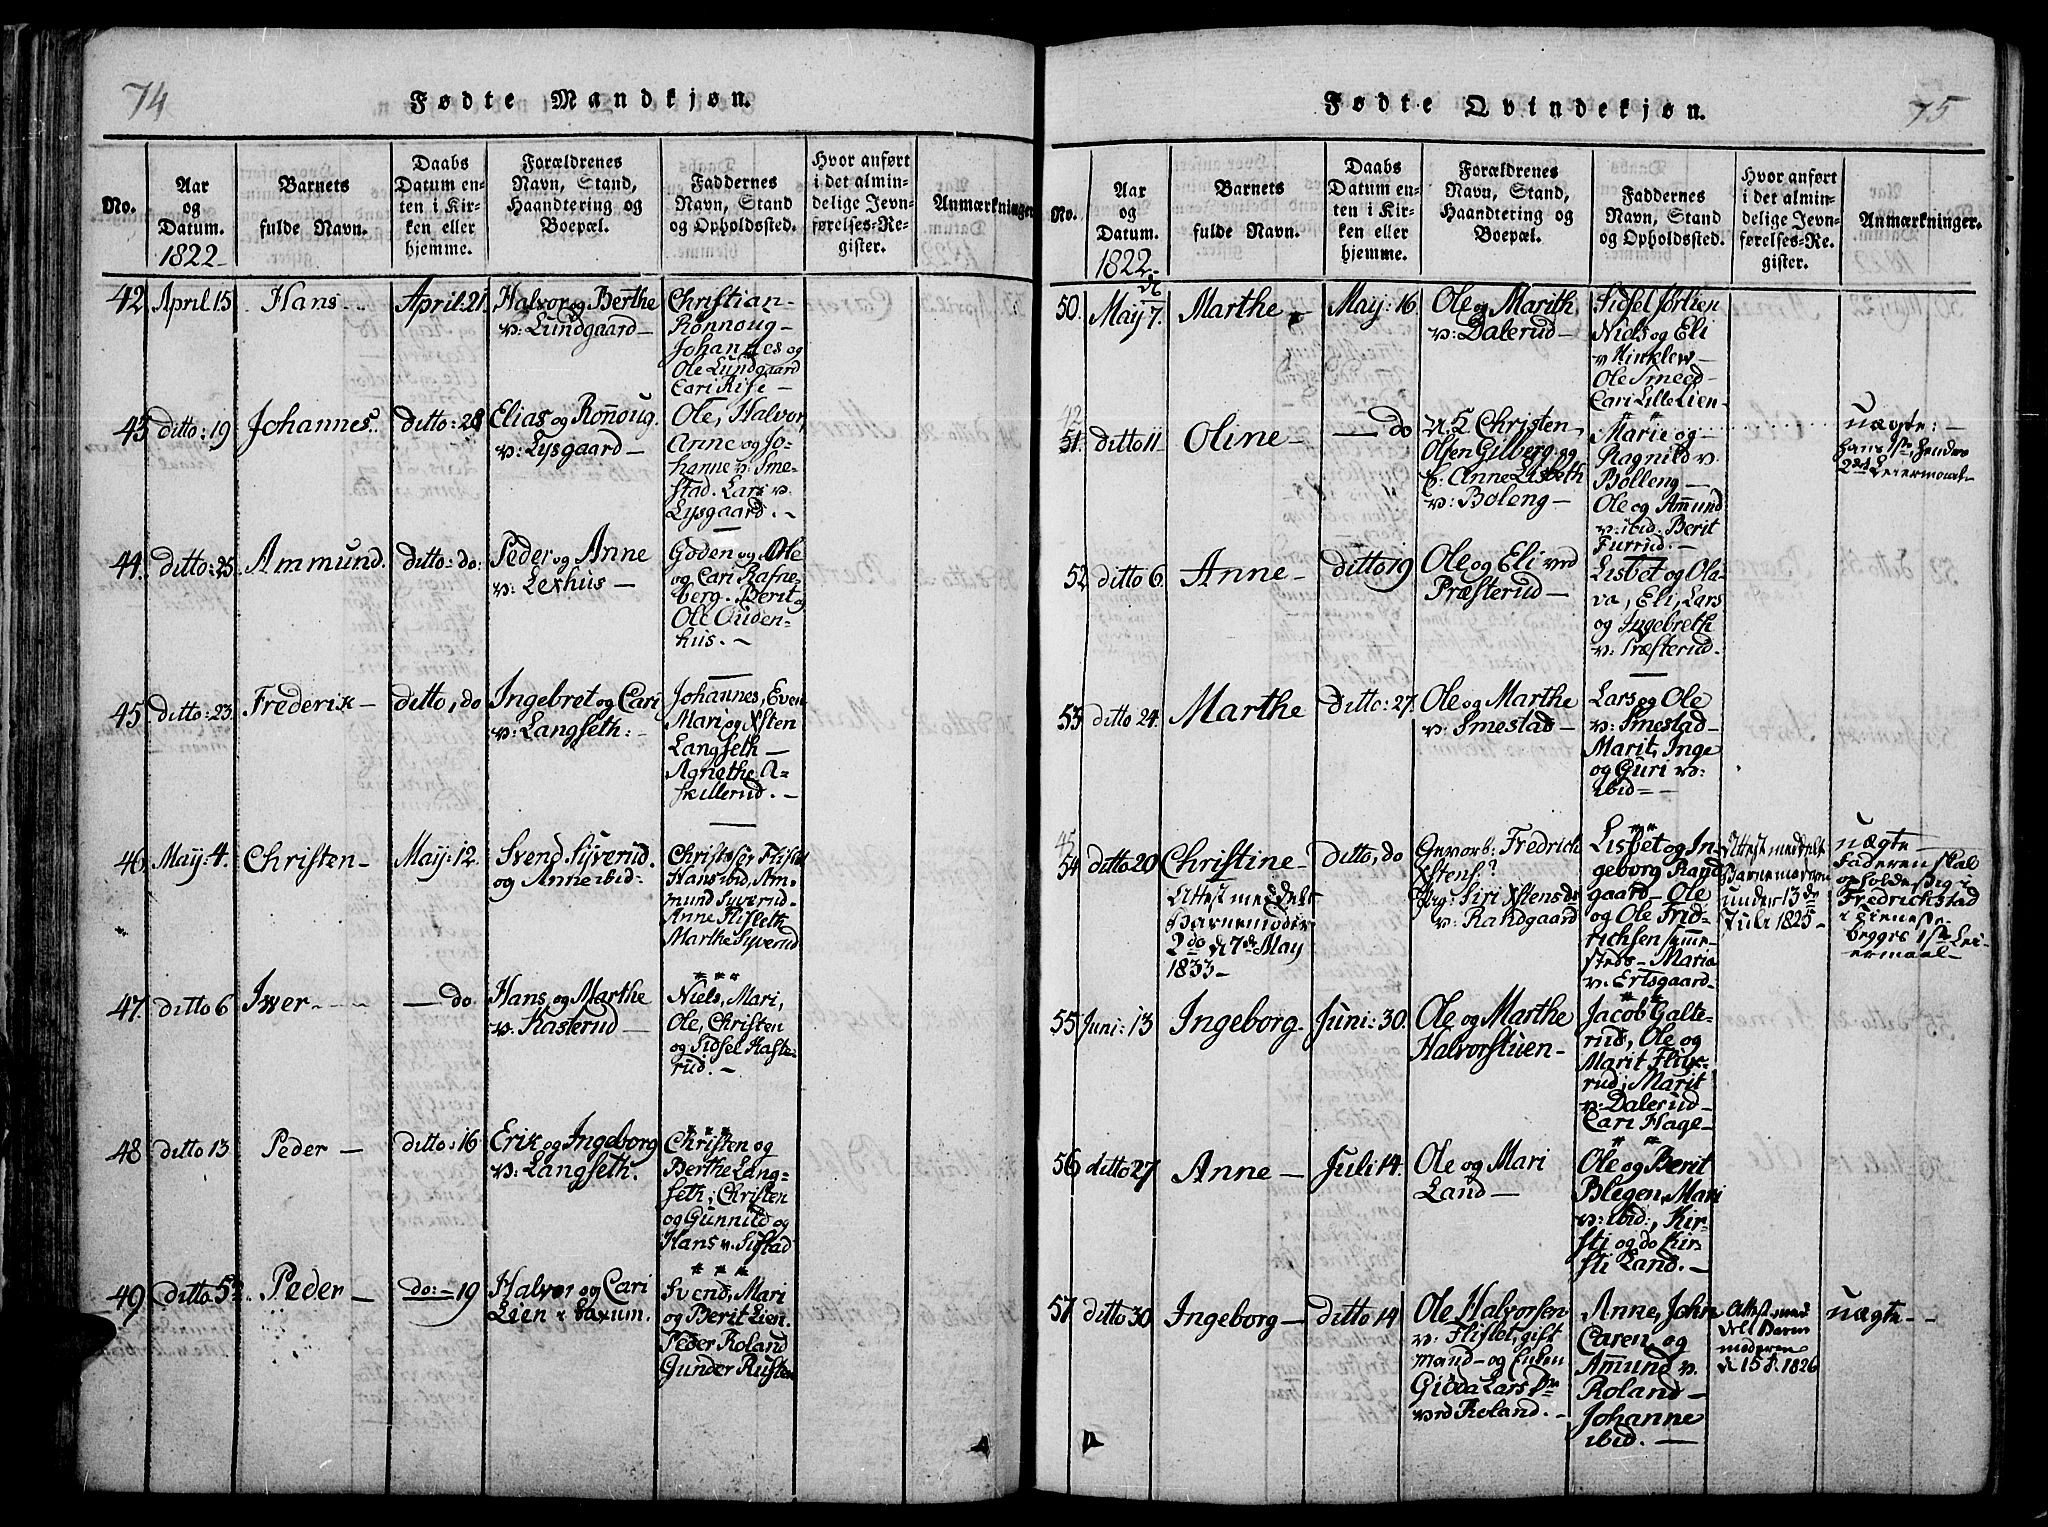 74
Fødte Mandkjøn.
No.
Aar
og
Datum.
1822
Barnets
fulde Navn.
Daabs
Datum en-
ten i Kir-
ken eller
hjemme.
Forældrenes
Navn, Stand,
Haandtering og
Boepæl.
Faddernes
Navn, Stand
og Opholdssted.
Hvor anført
i det almin-
delige Jevn-
førelses-Re-
gister.
Anmærkninger
42
April 15
Hans
April. 21.
Halvor og Berthe
v: Lundgaard
Christian
Rönnoug
Johannes og
Ole Lundgaard
Cari Rise
43
ditto: 19
Johannes.
ditto: 28
Elias og Rönoug
v: Lysgaard
Ole, Halvor,
Anne og Jo-
hanne v: Sme-
stad. Lars v:
Lysgaard.
44.
ditto: 25
Ammund.
ditto: do:
Peder og Anne
v: Lexhus
Goden og Ole
og Cari Rafne-
berg. Berit og
Ole Ouden-
hus.
45
ditto: 23.
Frederik
ditto, do
Ingebret og Cari
v: Langseth:
Johannes, Even
Mari og Xsten
Langseth
Agnethe A-
skillerud.
46
May: 4.
Christen
May: 12.
Svend Syverud.
og Anne ibid
Hans ibid, Am-
mund Syverud.
Anne Flisleth
Marthe Syverud
47.
ditto 6
Iver
do
Hans og Marthe
v: Kasterud
Niels, Mari,
Ole, Christen
og Sidsel Kaste-
rud.
48
ditto 13
Peder
ditto: 16
Erik og Ingeborg
v: Langseth.
Christen og
Berthe Lang-
seth; Christen
og Gunnild og
Hans v. Sistad
49
ditto 5te
Peder
do: 19
Halvor og Cari
Lien
Svend, Mari
og Berit Lien.
Peder Roland
Gunder Rusten
75
Fødte Qvindekjøn.
No.
Aar
og
Datum.
1822.
Barnets
fulde Navn.
Daabs
Datum en-
ten i Kir-
ken eller
hjemme.
Forældrenes
Navn, Stand,
Haandtering og
Boepæl.
Faddernes
Navn, Stand
og Opholdssted.
Hvor anført
i det almin-
delige Jevn-
førelses-Re-
gister.
Anmærkninger.
50.
May 7.
Marthe
May: 16
Ole og Marith
v: Dalerud
Sidsel Jorhen
Niels og Eli
v Vinklev
Ole Smeed
Cari Lille Lien
51.
ditto 11
Oline
do
Christen
Olsen Gilberg og
Anne Lisbeth
v: Boleng
Marie og
Ragnild v.
Bolleng
Ole og Amund
v: ibid. Berit
Furrud.
uægte:
hans 1ste, hendes
2det Leiermaal
52
ditto 6.
Anne
ditto 19
Ole og Eli ved
Præsterud
Lisbet og Ola-
va, Eli, Lars
og Ingebreth
v: Præsterud.
53
ditto 24.
Marthe
ditto: 27.
Ole og Marthe
v: Smestad
Lars og Ole
v: Smestad
Marit, Inge
og Guri v:
ibid
45
54
ditto 20
Christine
Attest meddelt
Barnemoder
2do d 7de May
1833
ditto, do
Gevorb: Fredrich
Xstens:
Siri Xstensdr
v: Randgaard
Lisbet og In
geborg Rand
gaard, Ole
og Ole Frid-
richsen samme-
steds. Maria
v: Ertsgaard
Attest meddelt
Barnemoderen
under 13de
Juli 1825
uægte
Faderen skal
opholde sig i
Fredrichstad
i Tieneste
begges 1ste Lei-
ermaal
55
Juni: 13
Ingeborg
Juni: 30.
Ole og Marthe
Halvorstuen
Jacob Galte-
rud, Ole og
Marit Flux-
rud; Marit
v: Dalerud
Cari Hage
56
ditto 27
Anne
Juli 14.
Ole og Mari
Land
Ole og Berit
Blegen, Mari
v: ibid:, Kir-
sti og do Kir-
sti Land.
57
ditto 30
Ingeborg
ditto 14
Ole Halvorsen
v: Flislet, gift
Mand og Enken
Gioda Lars Dtr
ved Roland.
Anne, John
Caren, og
Amund v.
Roland
Johanne
ibid.
Attest med
delt Barne
moderen
d 15 1826
uægte